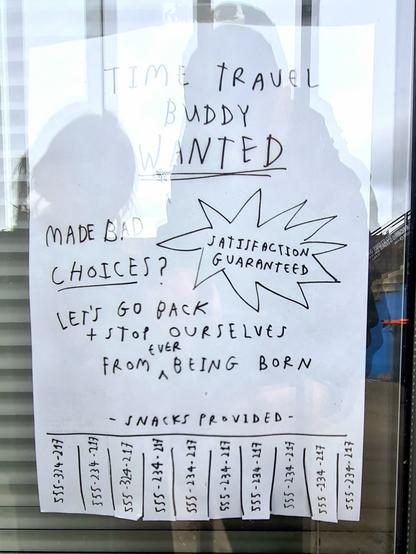 TIME TRAVEL
BUDDY
WANTED
MADE BAD
CHOICES?
SATISFACTION
GUARANTEED
LET'S GO BACK
+ STOP OURSELVES
EVER
FROM ^ BEING BORN
- SNACKS PROVIDED -
555-324-217
555-234-217
555-324-217
555-234-217
555-234-217
555-234-217
555-234-217
555-234-217
555-334-217
555-234-217